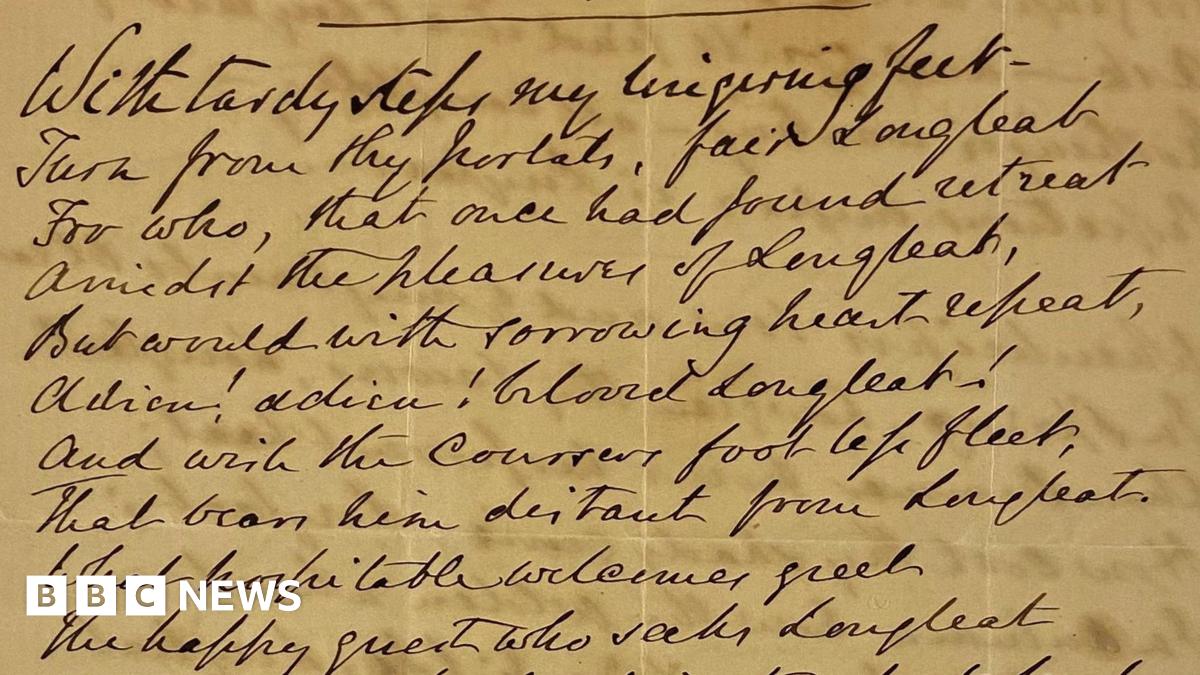 With tardy steps my lingering feet -
Turn from thy portals, fair Longleat
For who, that once had found retreat
Amidst the pleasures of Longleat,
But would with sorrowing heart repeat,
Adieu! adieu! beloved Longleat!
And wish the Coursers foot less fleet,
That bears him distant from Longleat.
What hospitable welcomes greet
The happy guest who seeks Longleat
BBC NEWS